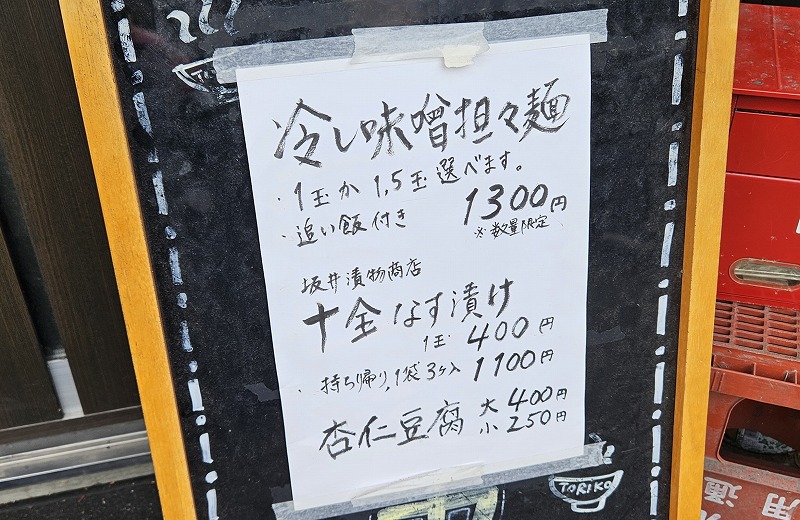 冷し味噌担々麺
・1玉か1,5玉選べます。
・追い飯付き 1300円
※数量限定
坂井漬物商店
十全なす漬け
1玉 400円
・持ち帰り,1袋3ヶ入 1100円
杏仁豆腐 大 400円
小 250円
TORIKO